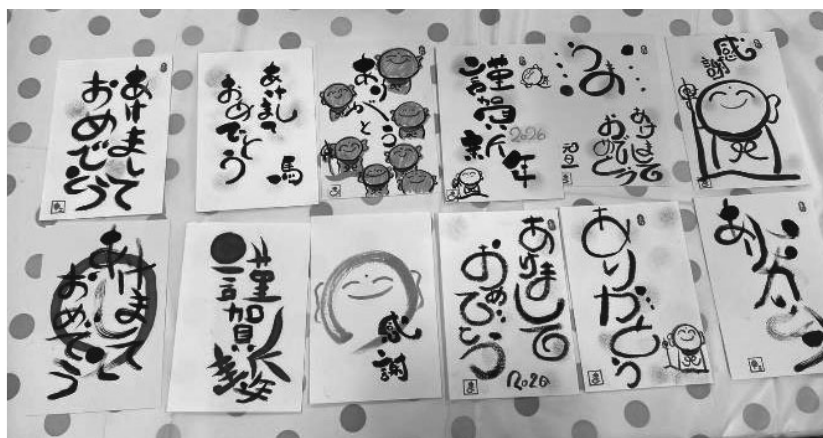 あけまして
おめでとう
あけまして
おめでとう
馬
ありがとう
謹賀
新年
2026
うま
あけまして
おめでとう
元旦
感謝
あけまして
おめでとう
謹賀
新年
感謝
あけまして
おめでとう
2026
ありがとう
ありがとう